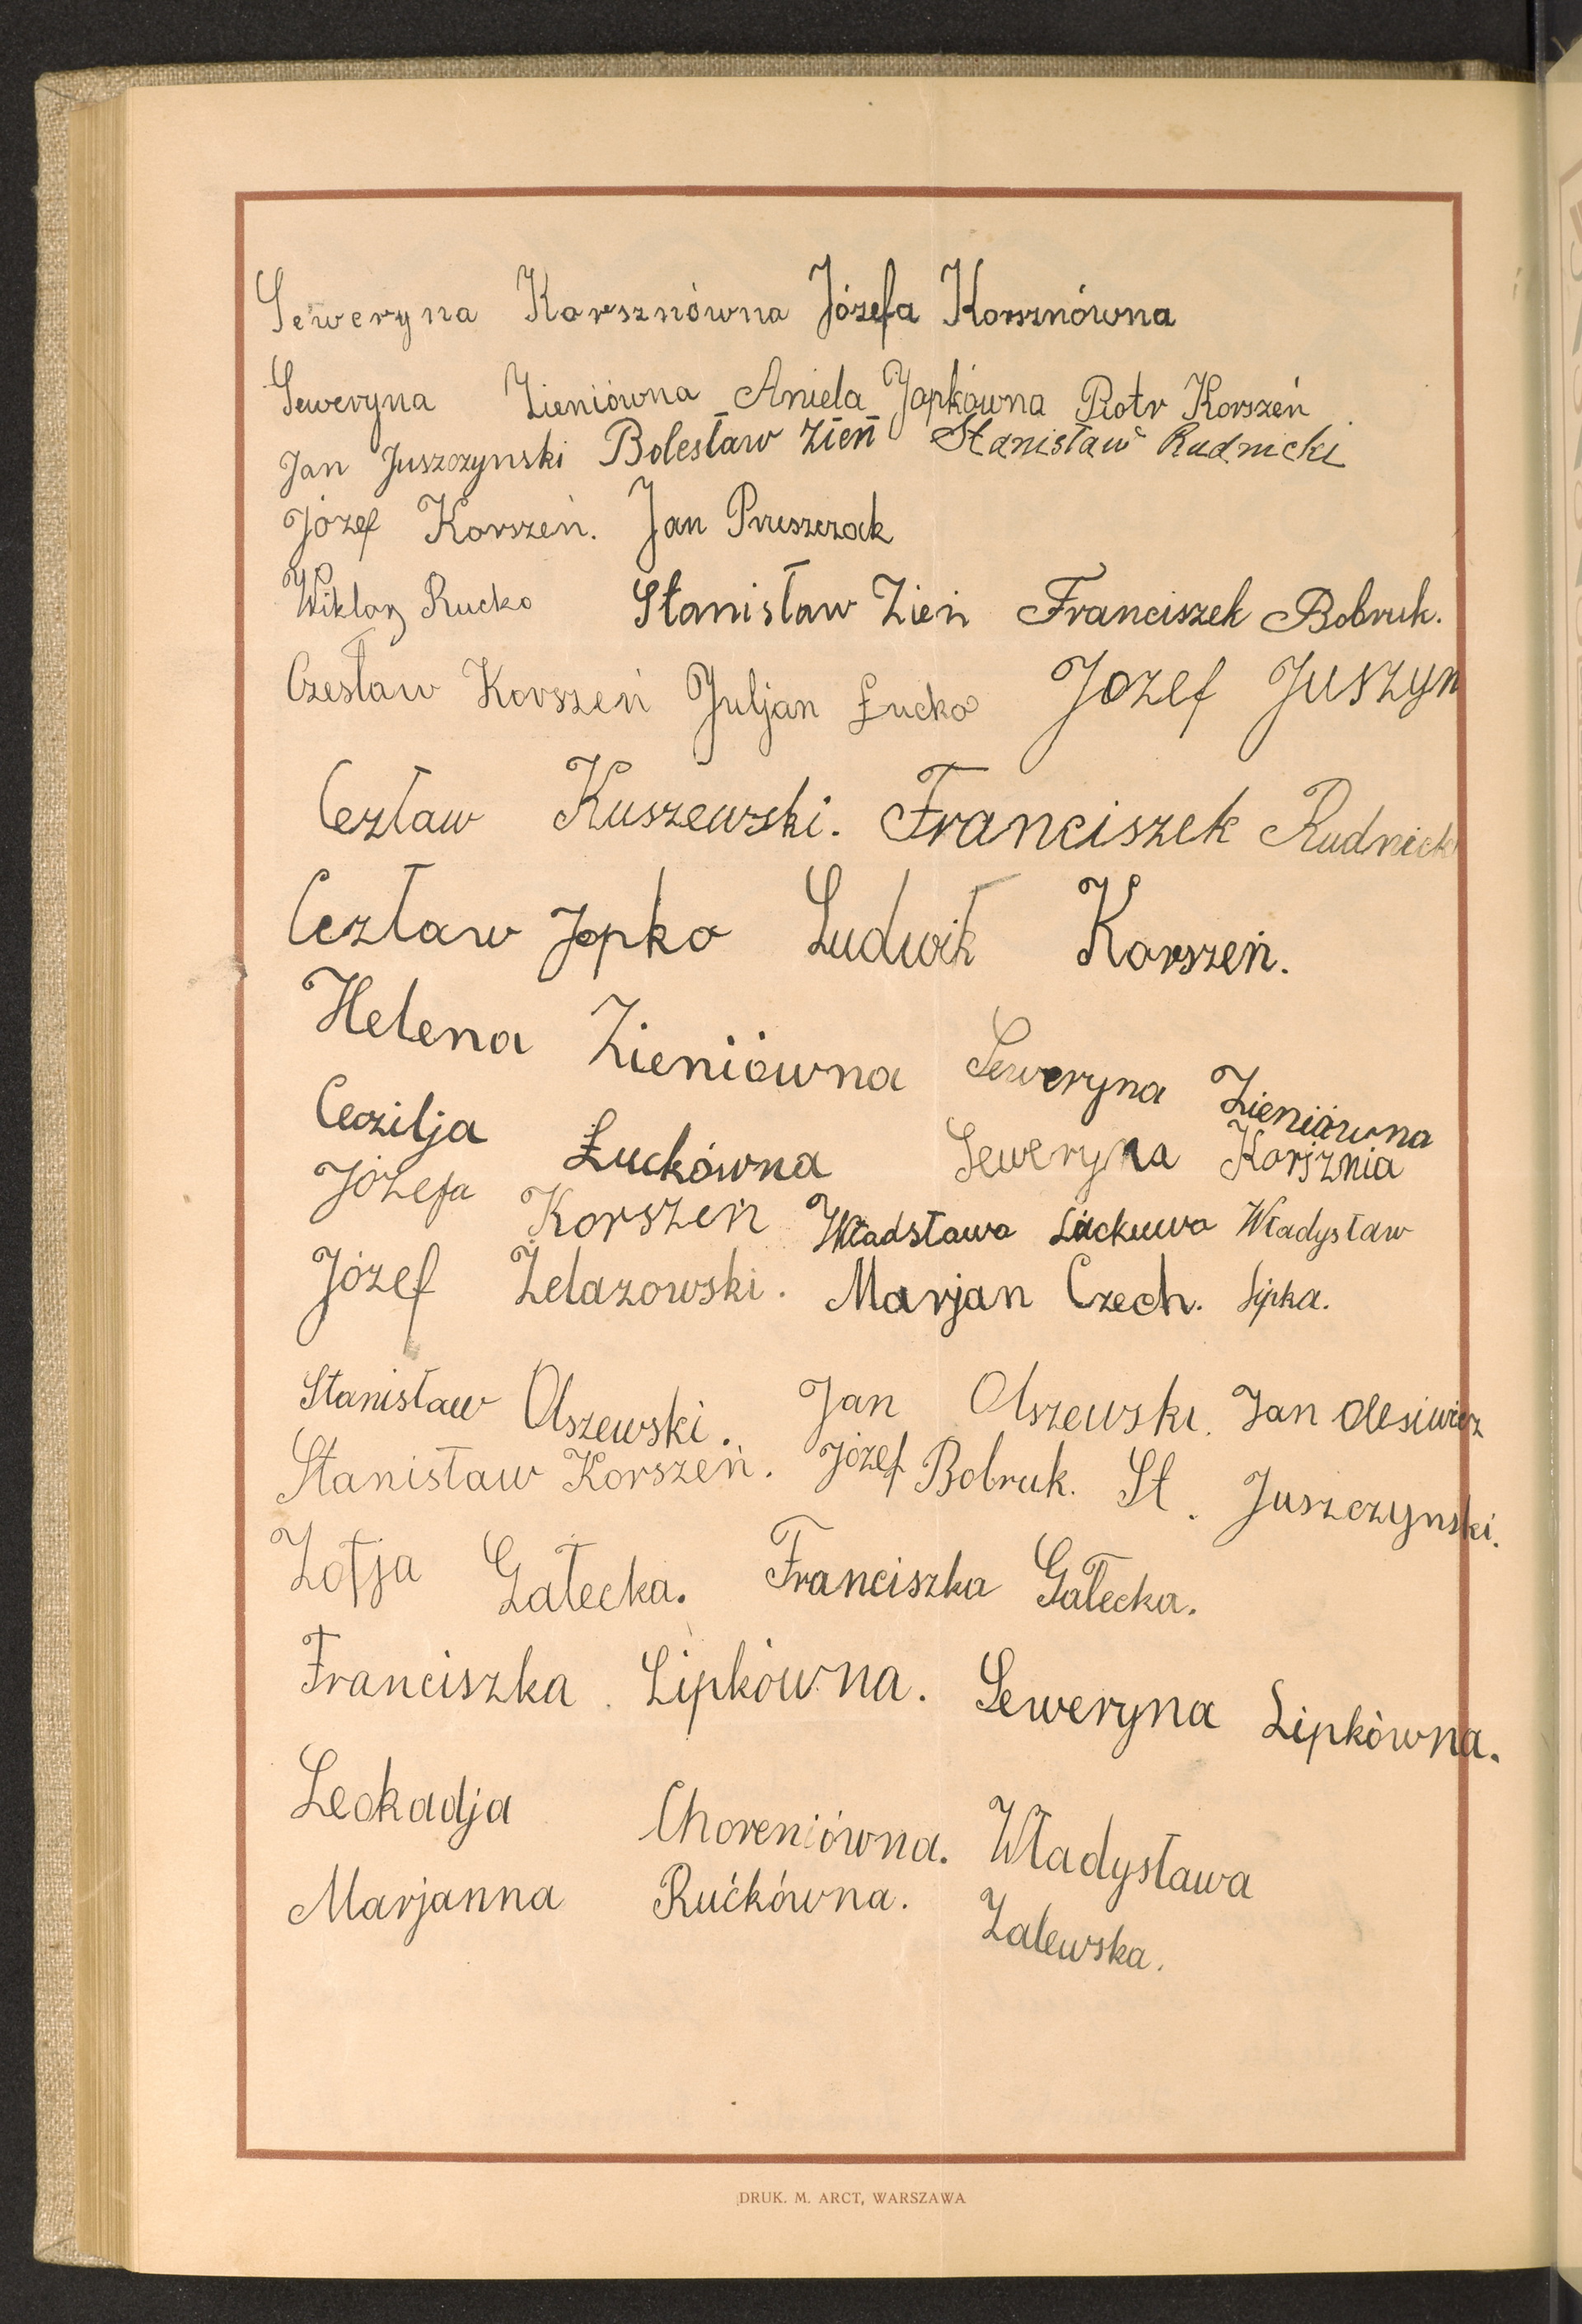 Seweryna Korsznówna Józefa Korsznówna
Seweryna Zieniówna Aniela Jopkówna Piotr Korszeń
Jan Juszczynski Bolesław Zień Stanisław Rudnicki
Józef Korszeń. Jan
Wiktor Rucko Stanisław Zień Franciszek Bobruk.
Czesław Korszeń Juljan Łucko Jozef Juszyn
Cezław Kuszewski. Franciszek Rudnick
Cezław Jopko Ludwik Korszeń.
Helena Zieniówna Seweryna Zieniówna
Cecilja Łuckówna Seweryna Korsznia
Józefa Korszeń Władsława Władysław
Józef Żelazowski. Marjan Czech. Lipka.
Stanisław Olszewski. Jan Olszewski. Jan Olesiwicz
Stanisław Korszeń. Józef Bobruk. St. Juszczynski.
Zofja Gałecka. Franciszka Gałecka.
Franciszka Lipkówna. Seweryna Lipkówna.
Leokadja Choreniówna. Władysława
Marjanna Rućkówna. Zalewska.
DRUK. M. ARCT, WARSZAWA